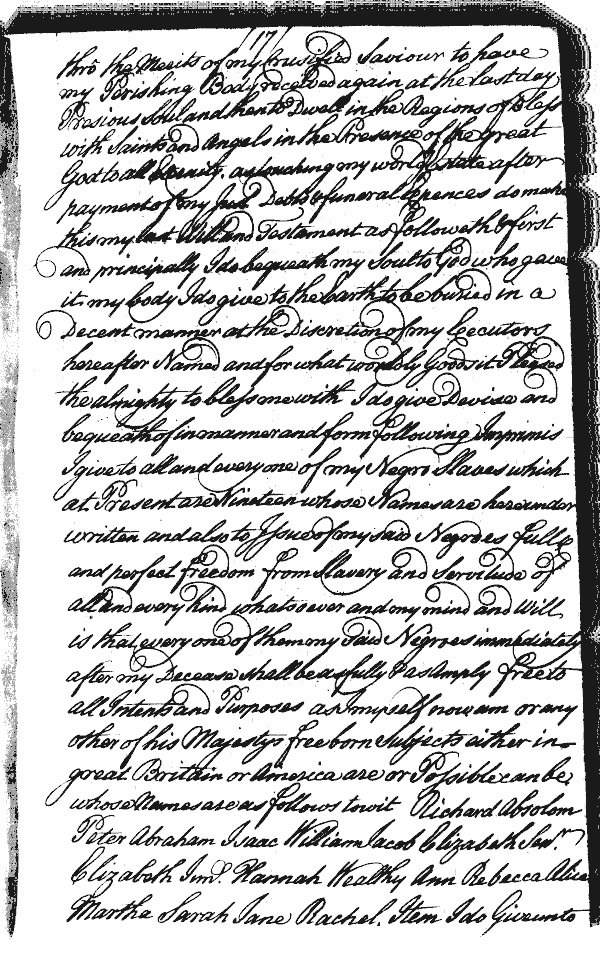 17
thrô the Merits of my Crusified Saviour to have
my Perishing Body received again at the last day
Presious Soul and hentô Dwell in the Regions of Bless
with Saints and Angels in the Presence of the great
God to all Eternity, as touching my worldly Estate after
payment of my Just Debts & funeral Expences do make
this my last Will and Testament as followeth & first
and principally I do bequeath my Soul to God who gave
it my body I do give to the Earth to be buried in a
Decent manner at the Discretion of my Execcutors
hereafter Named and for what worldly Goods it Pleased
the almighty to bless me with I do give Devise and
bequeath of in manner and form following Imprimis
I give to all and every one of my Negro Slaves which
at Present are Nineteen whose Names are hereunder
written and also to Issue of my said Negroes full
and perfect freedom from Slavery and Servitude of
all and every kind whatsoever and my mind and Will
is that every one of them my Said Negroes immediately
after my Decease shall be as fully & as Amply free to
all Intents and Purposes as myself now am or any
other of his Majestys freeborn Subjects either in
great Britain or America are or Possible can be
whose Names are as follows to wit Richard Absolom
Peter Abraham Isaac William Jacob Elizabeth Senr.
Elizabeth Junr. Hannah Wealthy Ann Rebecca Alice
Martha Sarah Jane Rachel. Item I do Give unto